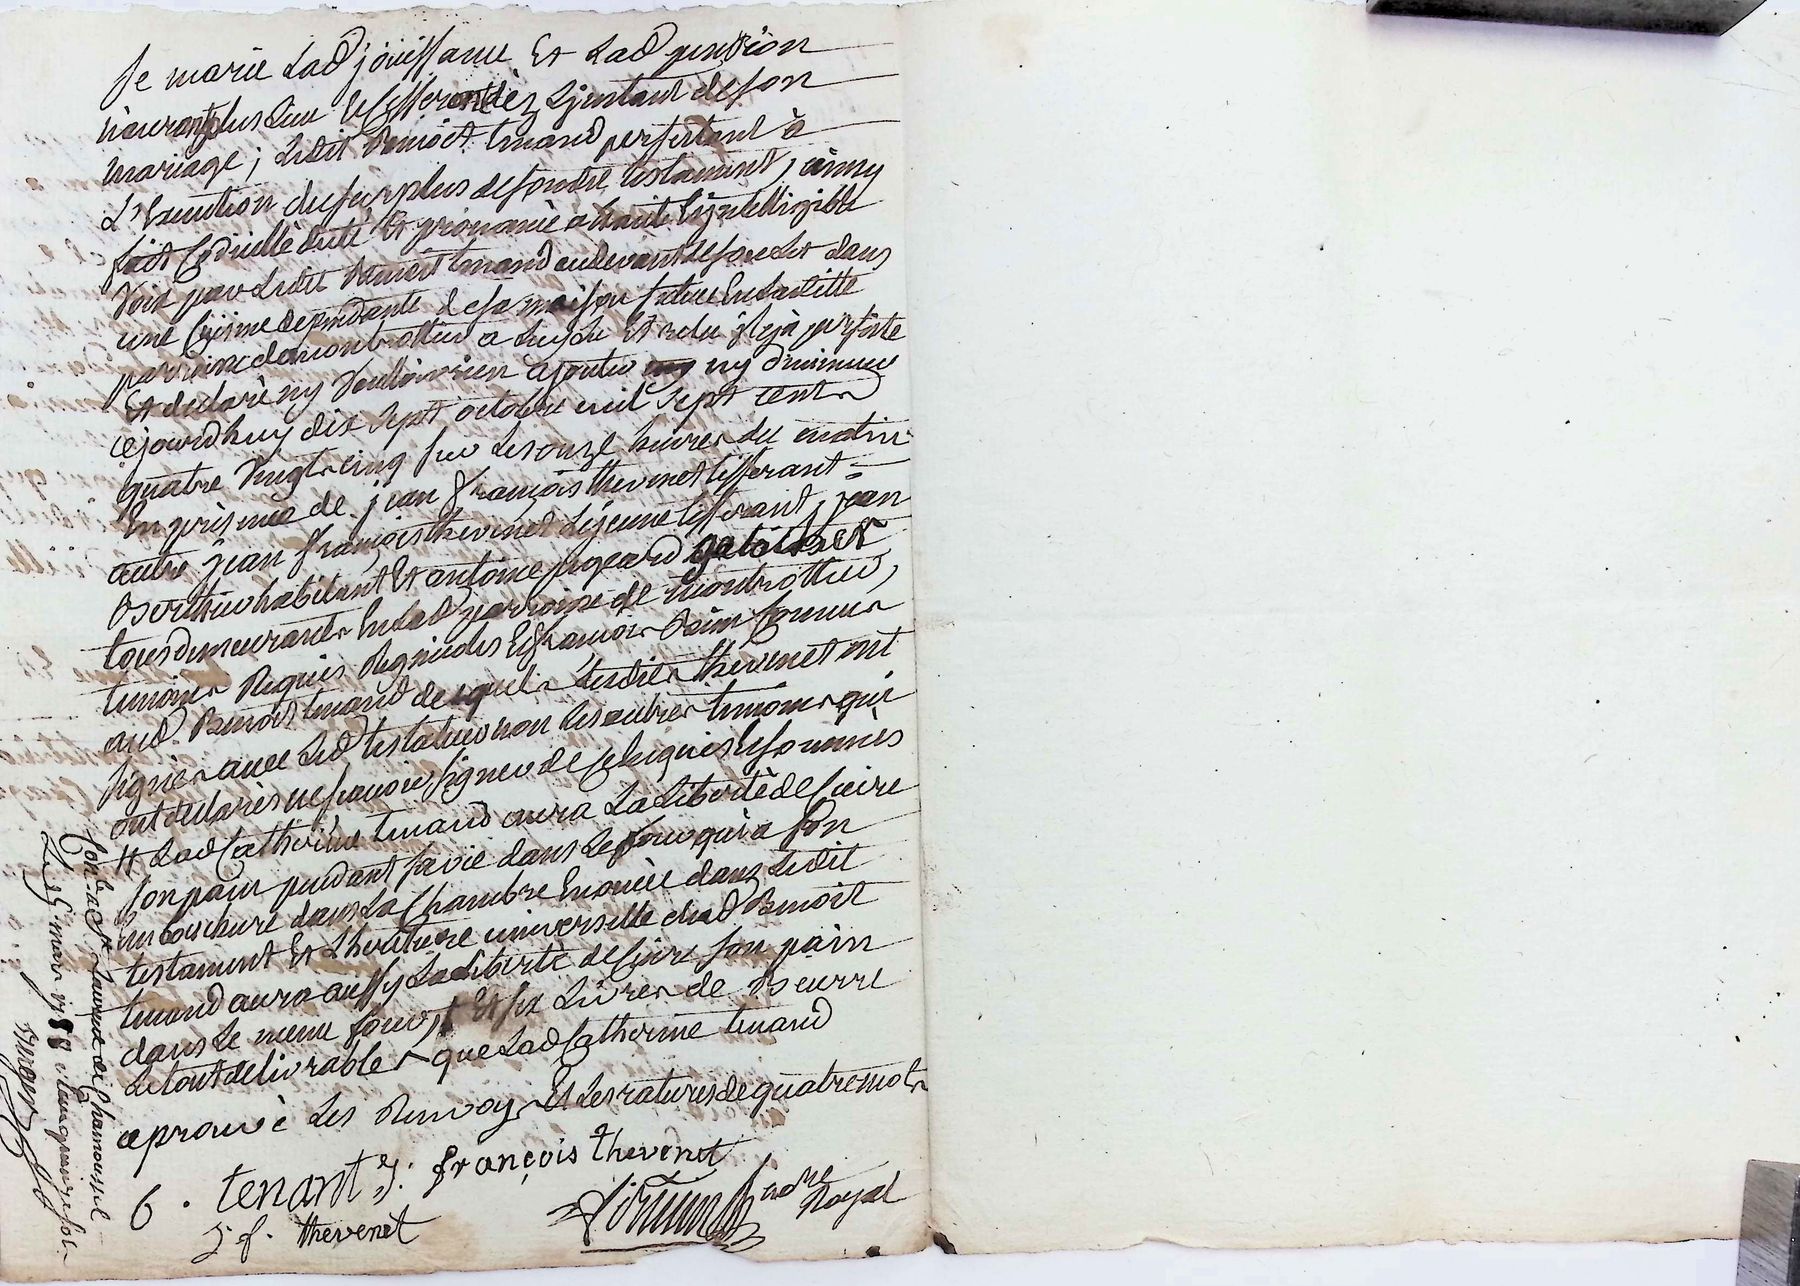 se marie Lad jouissance Et Lad pension
n'auront plus Lieu Et Cesseront dèz Linstant de son
mariage; Ledit Benoit tenand persistant à
L'Execution du surplus de sondit testament, ainsy
fait Codicillé dicté Et prononcé a haute Et jntelligible
Voix par Ledit Benoit tenand au devant de son Lit dans
une Cuisine dependante de sa maison scitue En Laditte
parroisse de montrottier a Luy Lu Et relu jl y à persisté
Et declaré ny Vouloir rien ajouter ny diminuer
cejourdhuy dix sept octobre mil sept cents
quatre Vingt cinq sur Les onze heures du matin
En présence de jean françois thevenet tisserant
autre jean françois thevenet Lejeune tisserant, jean
habitant Et antoine
tous demeurants En Lad parroisse de montrottier,
temoins Requis Et Connus
aud. Benoit tenand desquels Lesdits thevenet ont
signés avec Led testateur non Les autres temoins qui
ont declarés ne sçavoir signer de ce Enquis Et sommés
# Lad Catherine tenand aura La Liberté de Cuire
son pain pendant sa vie dans Le four qui a son
Embouchure dans La Chambre Enoncée dans Ledit
testament Et Lheritiere universelle dud Benoit
tenand aura aussy La Liberté de Cuire son pain
dans Le meme four, # Et six Livres de Beurre
Le tout delivrable que Lad Catherine tenand
aprouvé Les Renvoys Et Les ratures de quatre mots
6. tenant J. françois thevenet
j f. thevenet
nore Royal
Conlé a St Laurent de Chamousset
Le mars